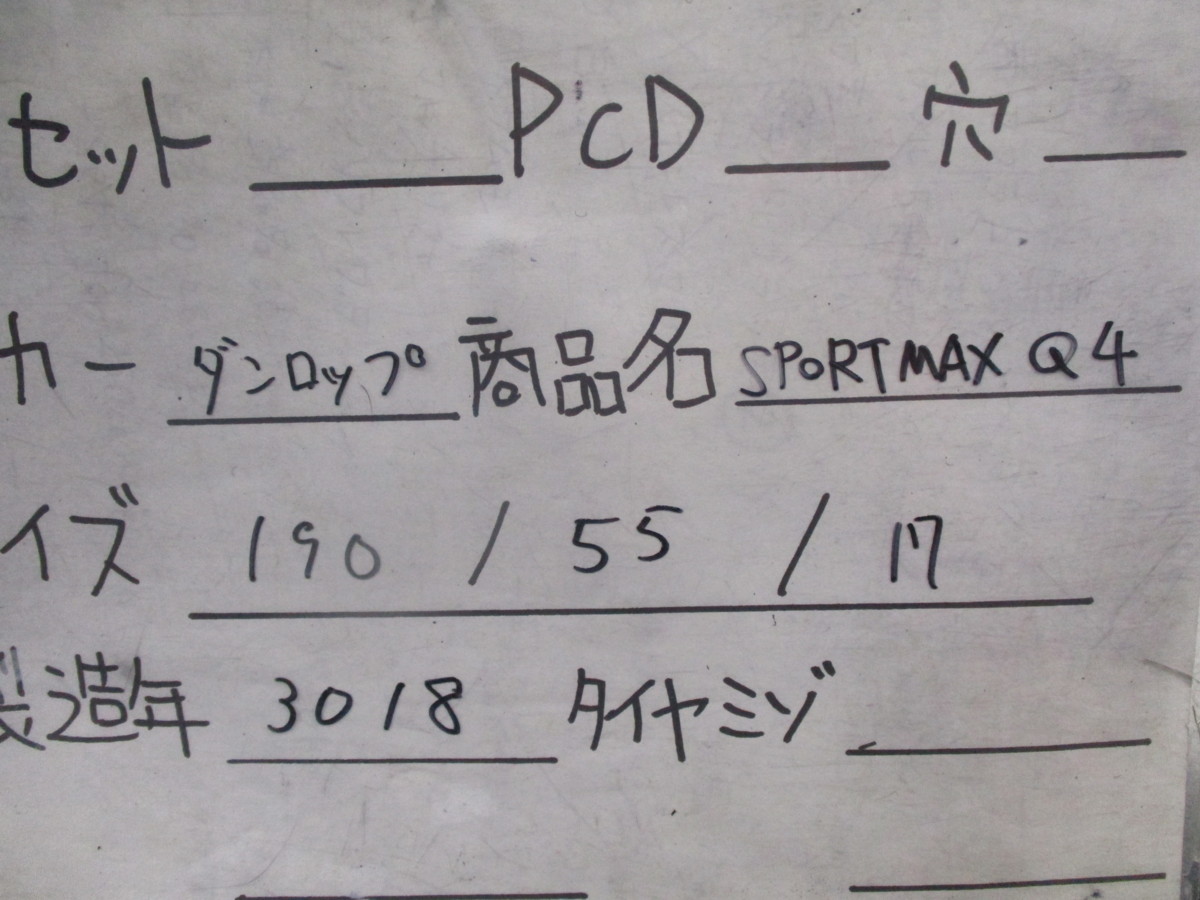 セット PCD 穴
カー ダンロップ 商品名 SPORTMAX Q4
イズ 190 / 55 / 17
製造年 3018 タイヤミゾ